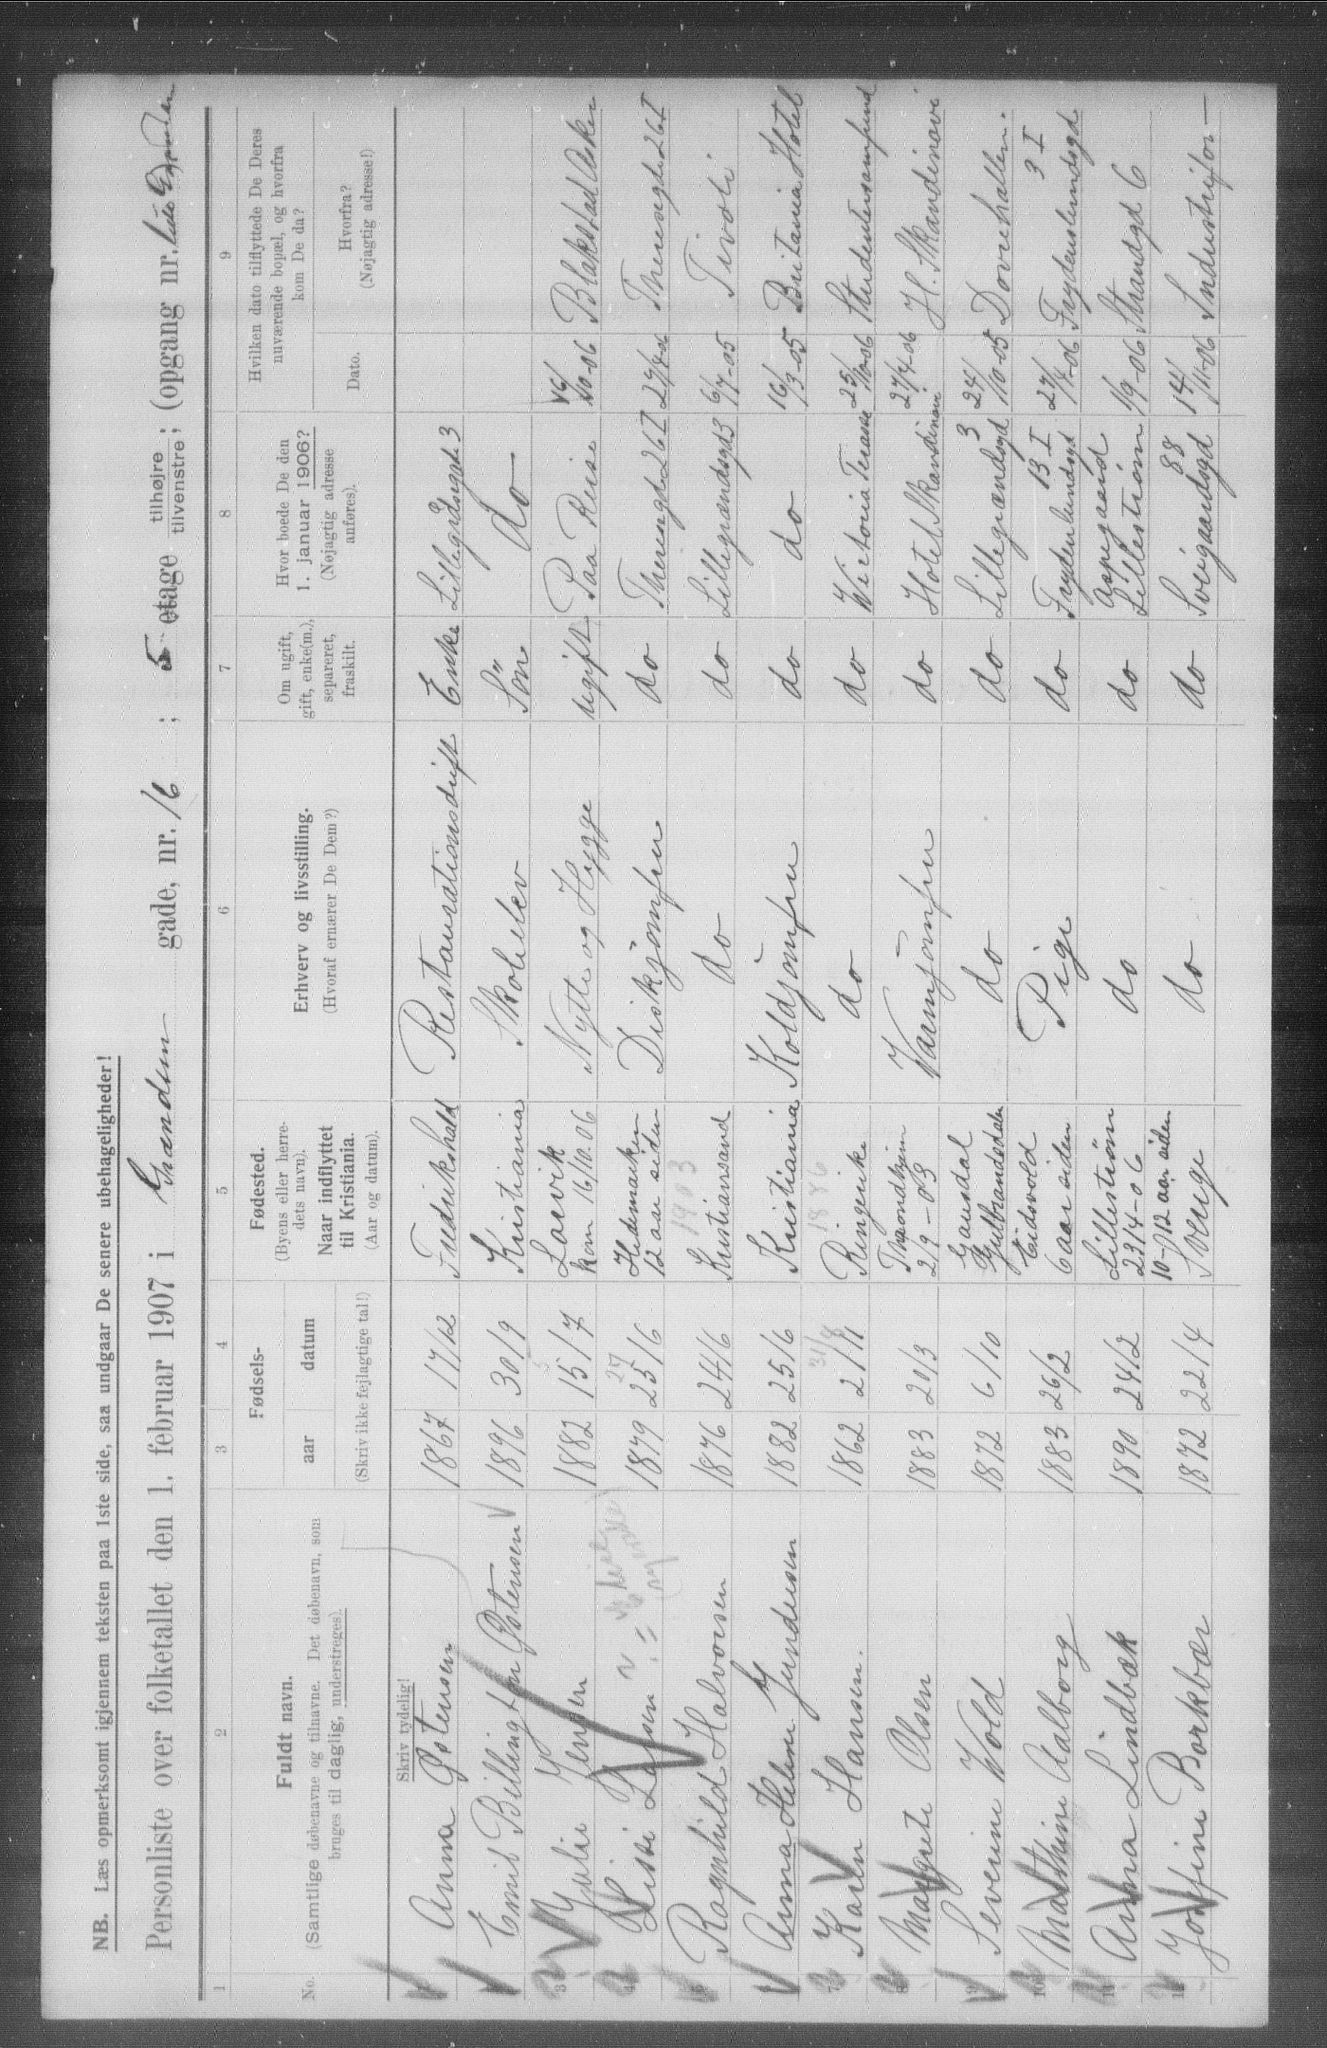 NB. Læs opmerksomt igjennem teksten paa 1ste side, saa undgaar De senere ubehageligheder!
Personliste over folketallet den 1. februar 1907 i Grændsen gade, nr. 16 ; 5 etage tilhøjre tilvenstre; (opgang nr.
1 2 3 4 5 6 7 8 9
No.
Fuldt navn.
(Samtlige døbenavne og tilnavne. Det døbenavn, som
bruges til daglig, understreges).
Fødsels-
aar datum
(Skriv ikke fejlagtige tal!)
Fødested.
(Byens eller herre-
dets navn).
Naar indflyttet
til Kristiania.
(Aar og datum).
Erhverv og livsstilling.
(Hvoraf ernærer De Dem?)
Om ugift,
gift, enke(m.),
separeret,
fraskilt.
Hvor boede De den
1. januar 1906?
(Nøjagtig adresse
anføres).
Hvilken dato tilflyttede De Deres
nuværende bopæl, og hvorfra
kom De da?
Dato.
Hvorfra?
(Nøjagtig adresse!)
Skriv tydelig!
Anna Østensen 1867 17/12 Fredrikshald Restaurationsdrift Enke Lillegrdsgd 3
Emil Billington Østensen 1896 30/9 Kristiania Skoleelev Sön do
3 Julie Jensen 1882 15/7 Larvik kom 16/10.06 Nytte og Hygge ugift Paa Reise 16/10-06 Blakstad Asker
4 Lissi Larsen 1879 25/6 Hedemarken 12 aar siden Diskjomfru do Theresgd 26 I 27/4 06 Theresgd 26 I
Ragnhild Halvorsen 1876 24/6 1903 Kristianssand do do Lillegrændsegd 3 6/7-05 Tivoli
Anna Helene Gundersen 1882 25/6 Kristiania Koldjomfru do do 16/3-05 Britania Hotel
7 Karen Hansen. 1862 2/11 31/8 1886 Ringerike do do Victoria Terasse 25/10-06 Studentersamfund
8 Margrete Olsen 1883 20/3 Throndhjem 2/9-03 Varmjomfru do Hotel Skandinavi 27/4-06 H. Skandinavi
Severin Wold 1872 6/10 Gausdal Gulbrandsdalen do do Lillegrændsgd 3 24/10-05 Dovrehallen.
10 Mathine Aalborg 1883 26/2 Eidsvold 6 aar siden Pige do Frydenlundsgd 13 I 27/4-06 Frydenlundsgd 3 I
Anna Lindbæk 1890 24/2 Lillestrøm 23/4-06 do do Lillestrøm 1/9-06 Strandgd 6
Josefine Borkbær 1872 22/4 10-12 aar siden Sverige do do Sveigaardgd 88 14/11-06 Industrifor-